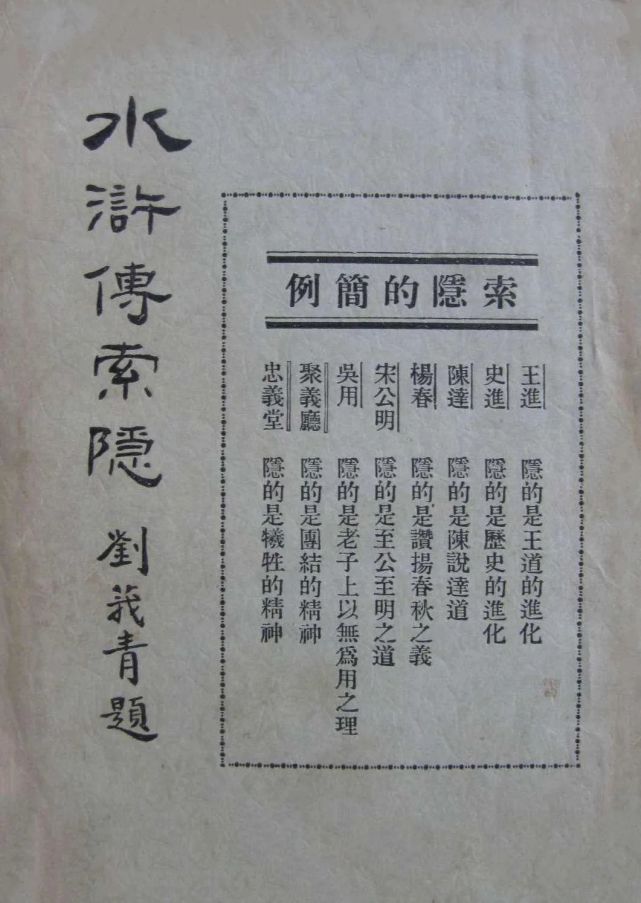 水滸傳索隱 劉莪青題
索隱的簡例
王進 隱的是王道的進化
史進 隱的是歷史的進化
陳達 隱的是陳說達道
楊春 隱的是讚揚春秋之義
宋公明 隱的是至公至明之道
吳用 隱的是老子上以無爲用之理
聚義廳 隱的是團結的精神
忠義堂 隱的是犧牲的精神